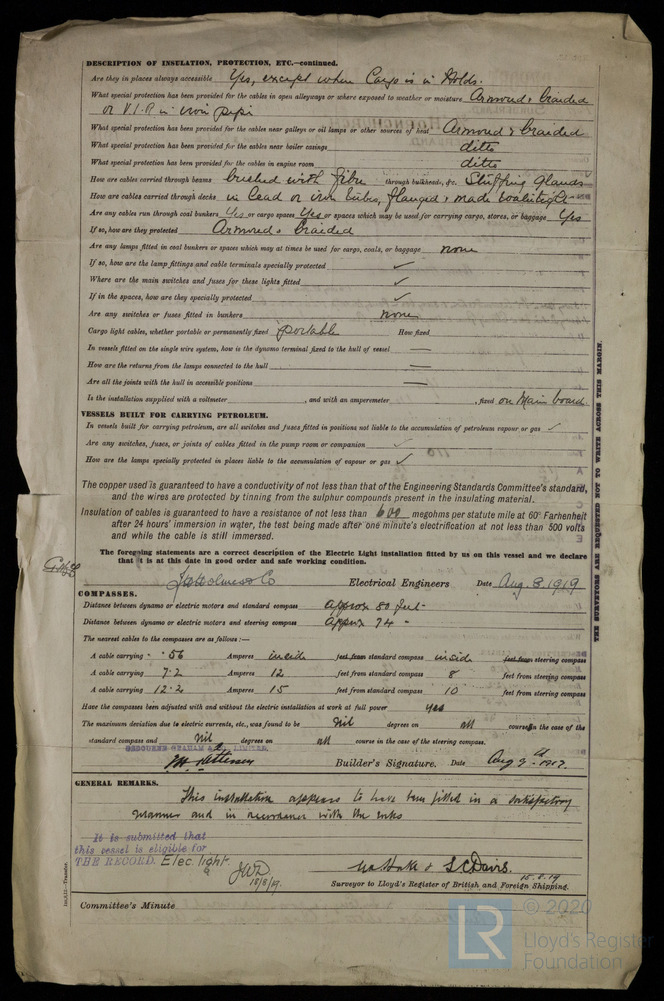 DESCRIPTION OF INSULATION, PROTECTION, ETC.—continued.
Are they in places always accessible Yes, except when Cargo is in Holds.
What special protection has been provided for the cables in open alleyways or where exposed to weather or moisture Armored & braided
or V.I.R in iron pipe
What special protection has been provided for the cables near galleys or oil lamps or other sources of heat Armored & braided
What special protection has been provided for the cables near boiler casings ditto
What special protection has been provided for the cables in engine room ditto
How are cables carried through beams bushed with fibre through bulkheads, &c. Stuffing Glands
How are cables carried through decks in lead or iron tubes, flanged & made watertight
Are any cables run through coal bunkers Yes or cargo spaces Yes or spaces which may be used for carrying cargo, stores, or baggage Yes
If so, how are they protected Armored & braided
Are any lamps fitted in coal bunkers or spaces which may at times be used for cargo, coals, or baggage none
If so, how are the lamp fittings and cable terminals specially protected ✓
Where are the main switches and fuses for these lights fitted ✓
If in the spaces, how are they specially protected ✓
Are any switches or fuses fitted in bunkers none
Cargo light cables, whether portable or permanently fixed portable How fixed
In vessels fitted on the single wire system, how is the dynamo terminal fixed to the hull of vessel
How are the returns from the lamps connected to the hull —
Are all the joints with the hull in accessible positions —
Is the installation supplied with a voltmeter , and with an amperemeter , fixed on Main board
VESSELS BUILT FOR CARRYING PETROLEUM.
In vessels built for carrying petroleum, are all switches and fuses fitted in positions not liable to the accumulation of petroleum vapour or gas ✓
Are any switches, fuses, or joints of cables fitted in the pump room or companion ✓
How are the lamps specially protected in places liable to the accumulation of vapour or gas ✓
The copper used is guaranteed to have a conductivity of not less than that of the Engineering Standards Committee's standard,
and the wires are protected by tinning from the sulphur compounds present in the insulating material.
Insulation of cables is guaranteed to have a resistance of not less than 600 megohms per statute mile at 60° Farhenheit
after 24 hours' immersion in water, the test being made after one minute's electrification at not less than 500 volts
and while the cable is still immersed.
The foregoing statements are a correct description of the Electric Light installation fitted by us on this vessel and we declare
that it is at this date in good order and safe working condition.
J H Holmes & Co Electrical Engineers Date Aug 8. 1919
COMPASSES.
Distance between dynamo or electric motors and standard compass approx 80 feet
Distance between dynamo or electric motors and steering compass approx 74 "
The nearest cables to the compasses are as follows:—
A cable carrying .56 Amperes inside feet from standard compass inside feet from steering compass
A cable carrying 7.2 Amperes 12 feet from standard compass 8 feet from steering compass
A cable carrying 12.2 Amperes 15 feet from standard compass 10 feet from steering compass
Have the compasses been adjusted with and without the electric installation at work at full power yes
The maximum deviation due to electric currents, etc., was found to be Nil degrees on all courses in the case of the
standard compass and Nil degrees on all course in the case of the steering compass.
OSBOURNE GRAHAM & Co., LIMITED,
Builder's Signature. Date
GENERAL REMARKS.
This installation appears to have been fitted in a satisfactory
manner and in accordance with the rules
It is submitted that
this vessel is eligible for
THE RECORD. Elec. light.
JWD
18/8/19.
& L C Davis.
15.8.19
Surveyor to Lloyd's Register of British and Foreign Shipping.
Committee's Minute
THE SURVEYORS ARE REQUESTED NOT TO WRITE ACROSS THIS MARGIN.
© 2020
LR
Lloyd's Register
Foundation